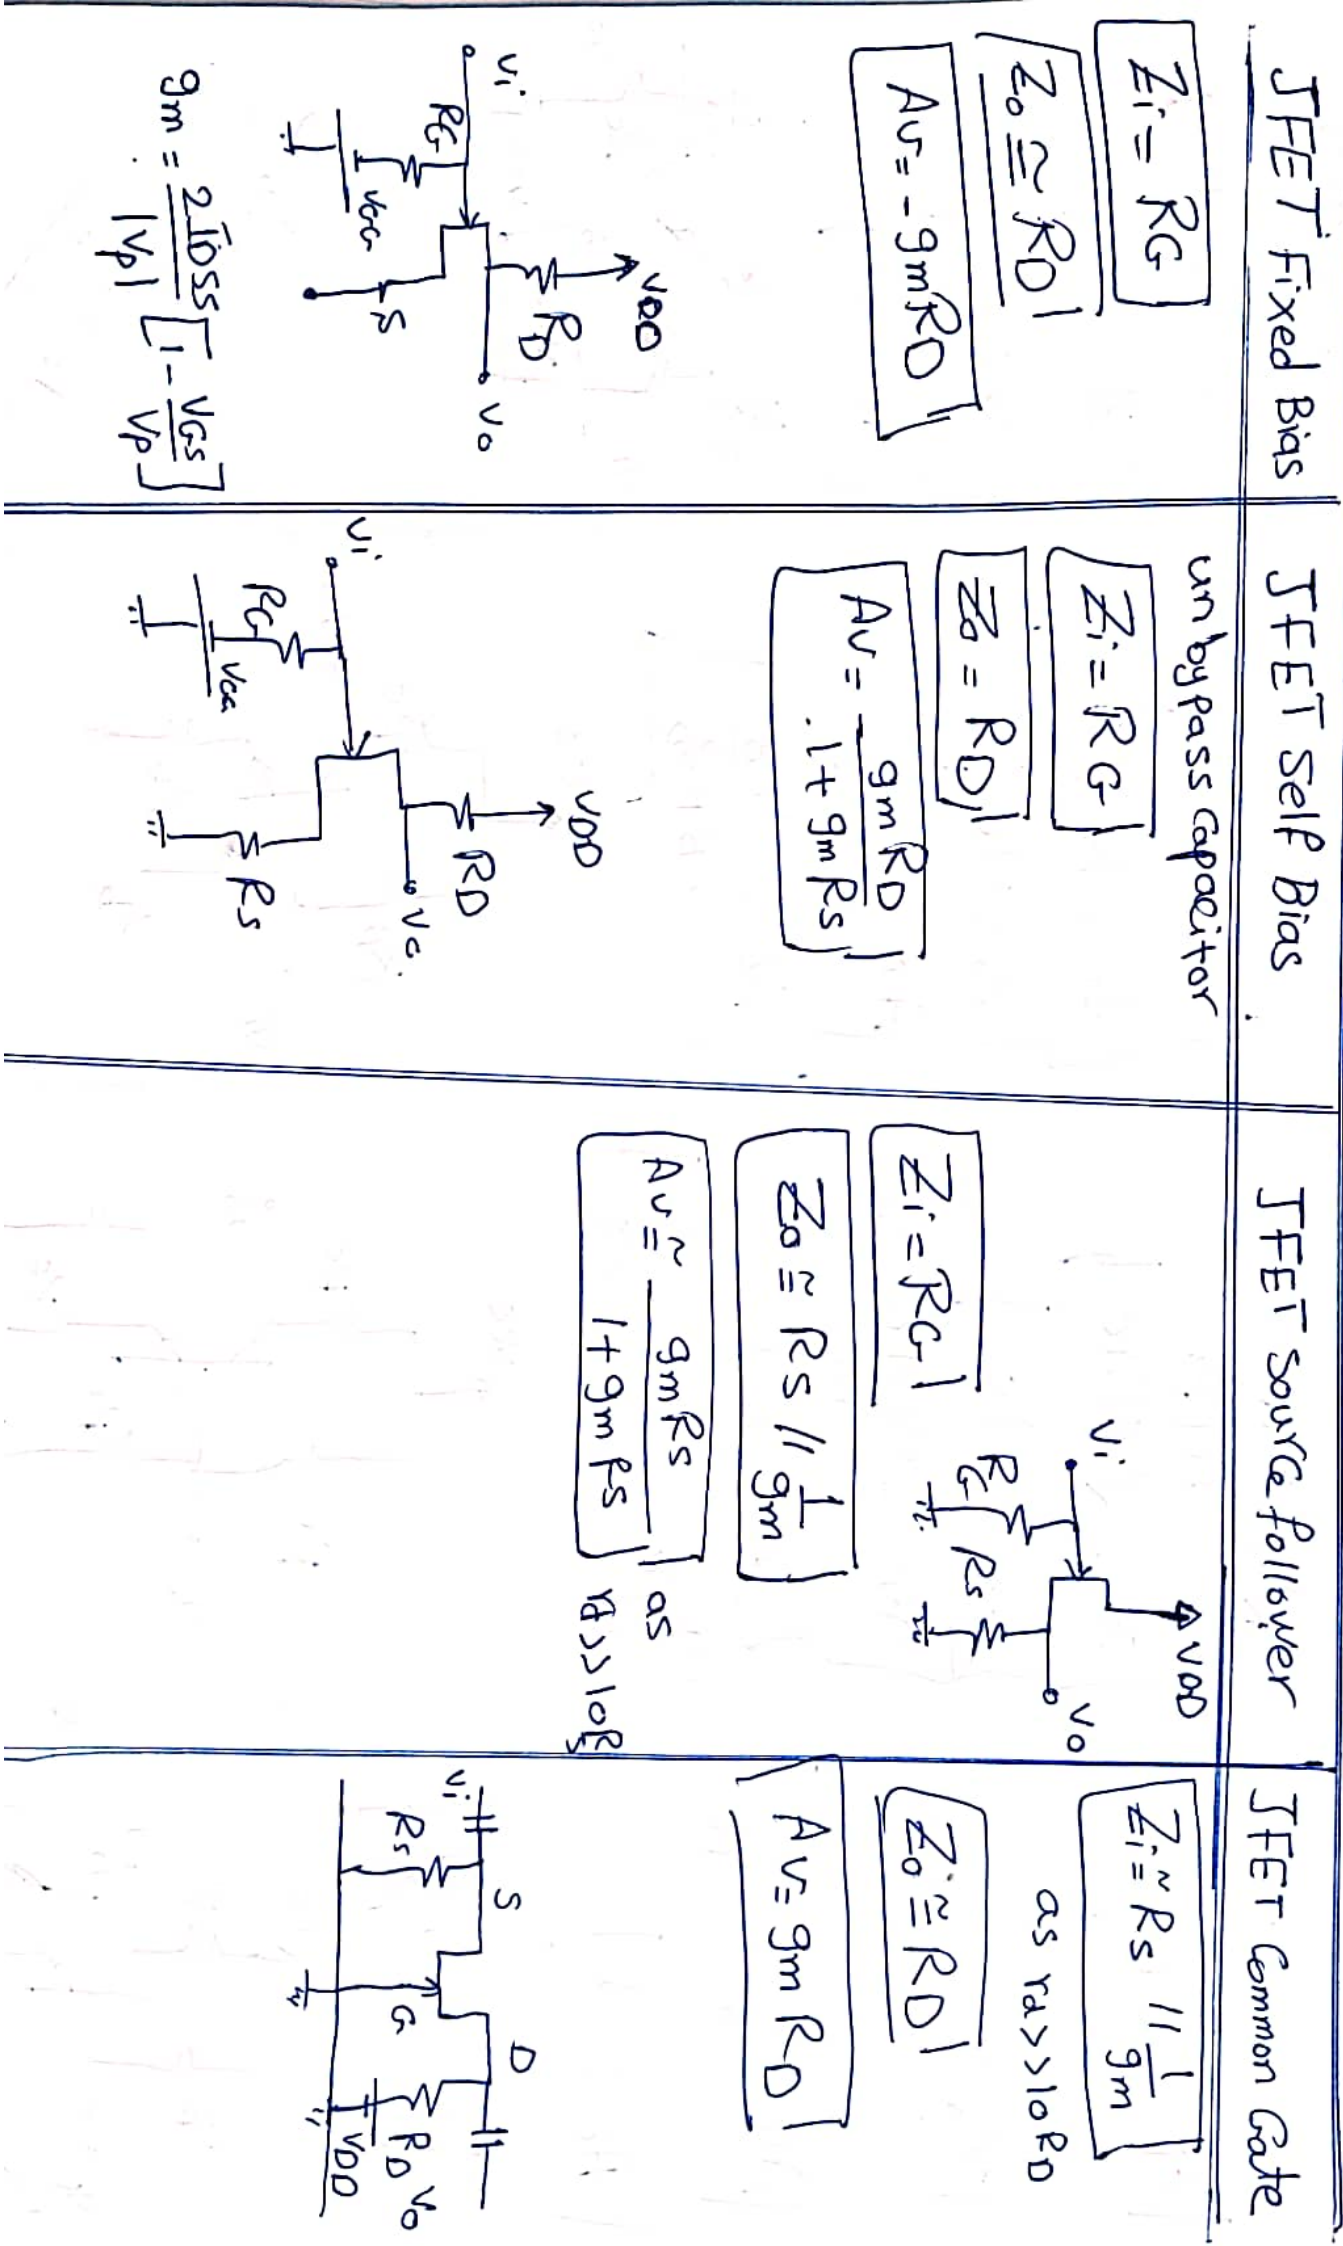 JFET Fixed Bias
Zi = RG
Zo ≅ RD
Av = - gm RD
VDD
RD
Vi
Vo
RG
S
VGG
gm = 2IDSS / |Vp| [1 - VGS / Vp]
JFET Self Bias
unbypass Capacitor
Zi = RG
Zo = RD
Av = - gm RD / 1 + gm Rs
VDD
RD
Vi
Vo
RG
Rs
VGG
JFET Source follower
VDD
Vi
Vo
RG
Rs
Zi = RG
Zo ≅ Rs // 1 / gm
Av ≅ gm Rs / 1 + gm Rs
as
rd >> 10Rs
JFET Common Gate
Zi ≅ Rs // 1 / gm
as rd >> 10 RD
Zo ≅ RD
Av = gm RD
Vi
S
D
Rs
G
RD
Vo
VDD